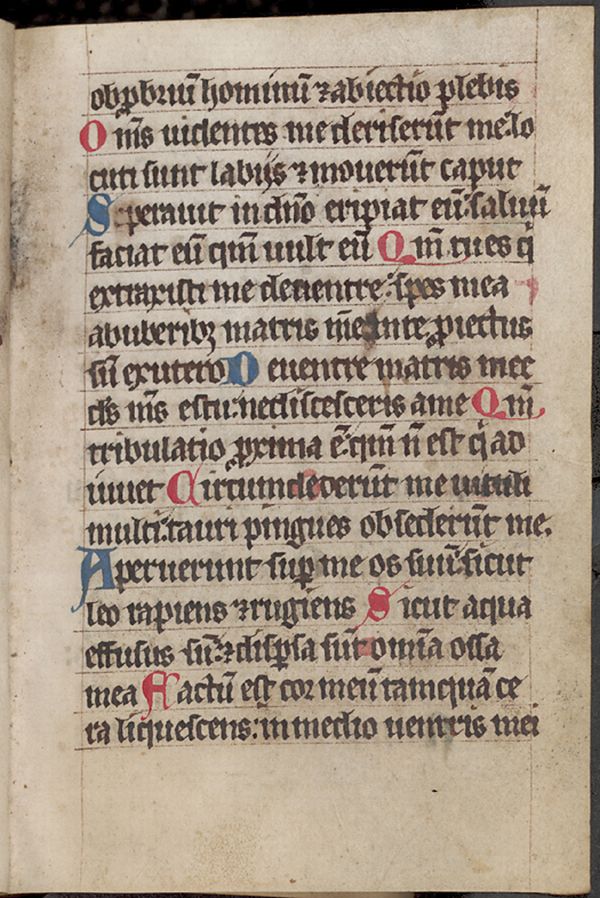 obꝓbriū hominū ⁊ abiectio plebis
O m̄s uidentes me deriserūt me: lo
cuti sunt labijs ⁊ mouerūt caput
Sperauit in dn̄o eripiat eū: saluū
faciat eū qm̄ uult eū Qm̄ tu es q̄
extraxisti me de uentre: spes mea
ab uberibꝫ matris mee in te ꝓiectus
sū ex utero De uentre matris mee
ds̄ m̄s es tu: ne discesceris a me Qm̄
tribulatio ꝓxima ē: qm̄ n̄ est q̄ ad
iuuet Circumdederūt me uituli
multi: tauri pingues obsederūt me.
Aperuerunt suꝑ me os suū: sicut
leo rapiens ⁊ rugiens Sicut aqua
effusus sū: ⁊ disꝑsa sūt om̄ia ossa
mea Factū est cor meū tamquā ce
ra liquescens: in medio uentris mei